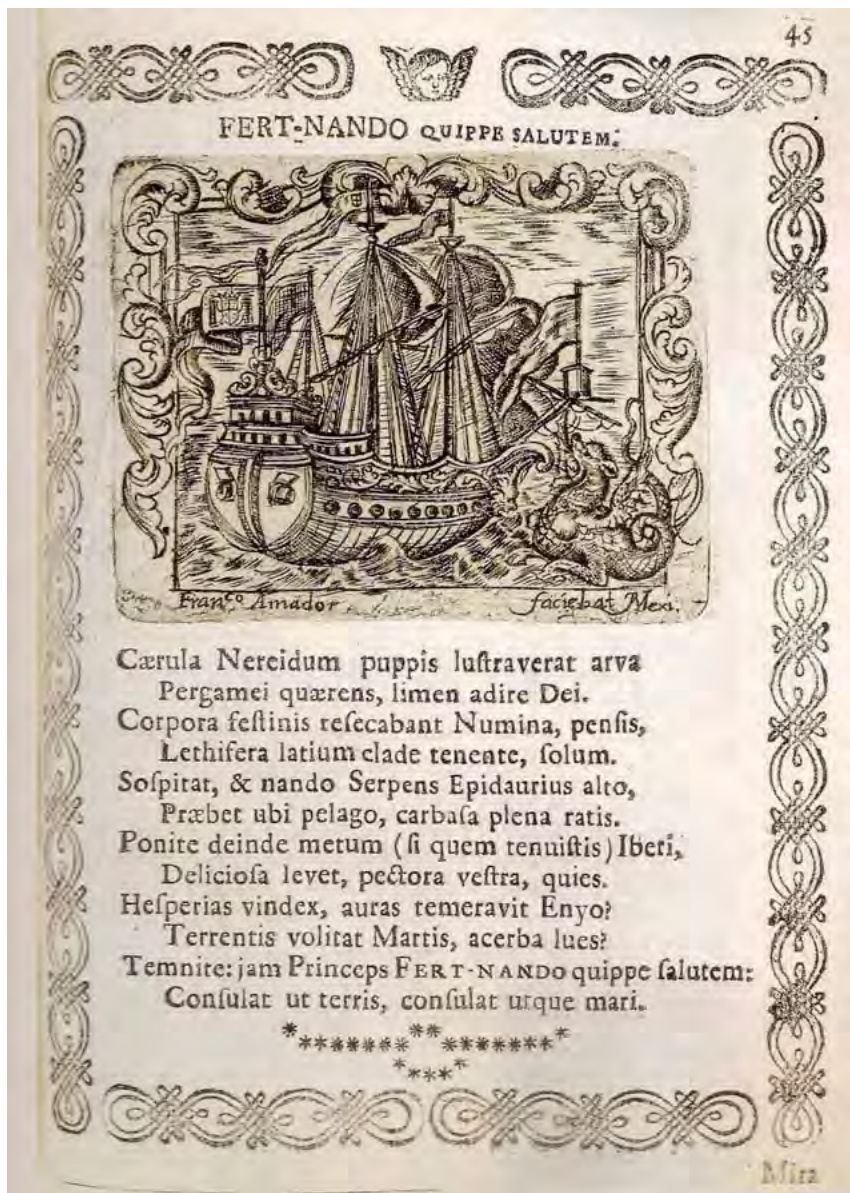 45
FERT-NANDO QUIPPE SALUTEM.
Fran.co Amador faciebat Mexi.
Cærula Nereidum puppis luſtraverat arva
Pergamei quærens, limen adire Dei.
Corpora feſtinis reſecabant Numina, penſis,
Lethifera latium clade tenente, ſolum.
Soſpitat, & nando Serpens Epidaurius alto,
Præbet ubi pelago, carbaſa plena ratis.
Ponite deinde metum (ſi quem tenuiſtis) Iberi,
Delicioſa levet, pectora veſtra, quies.
Heſperias vindex, auras temeravit Enyo?
Terrentis volitat Martis, acerba lues?
Temnite: jam Princeps FERT-NANDO quippe ſalutem:
Conſulat ut terris, conſulat utque mari.
Mira